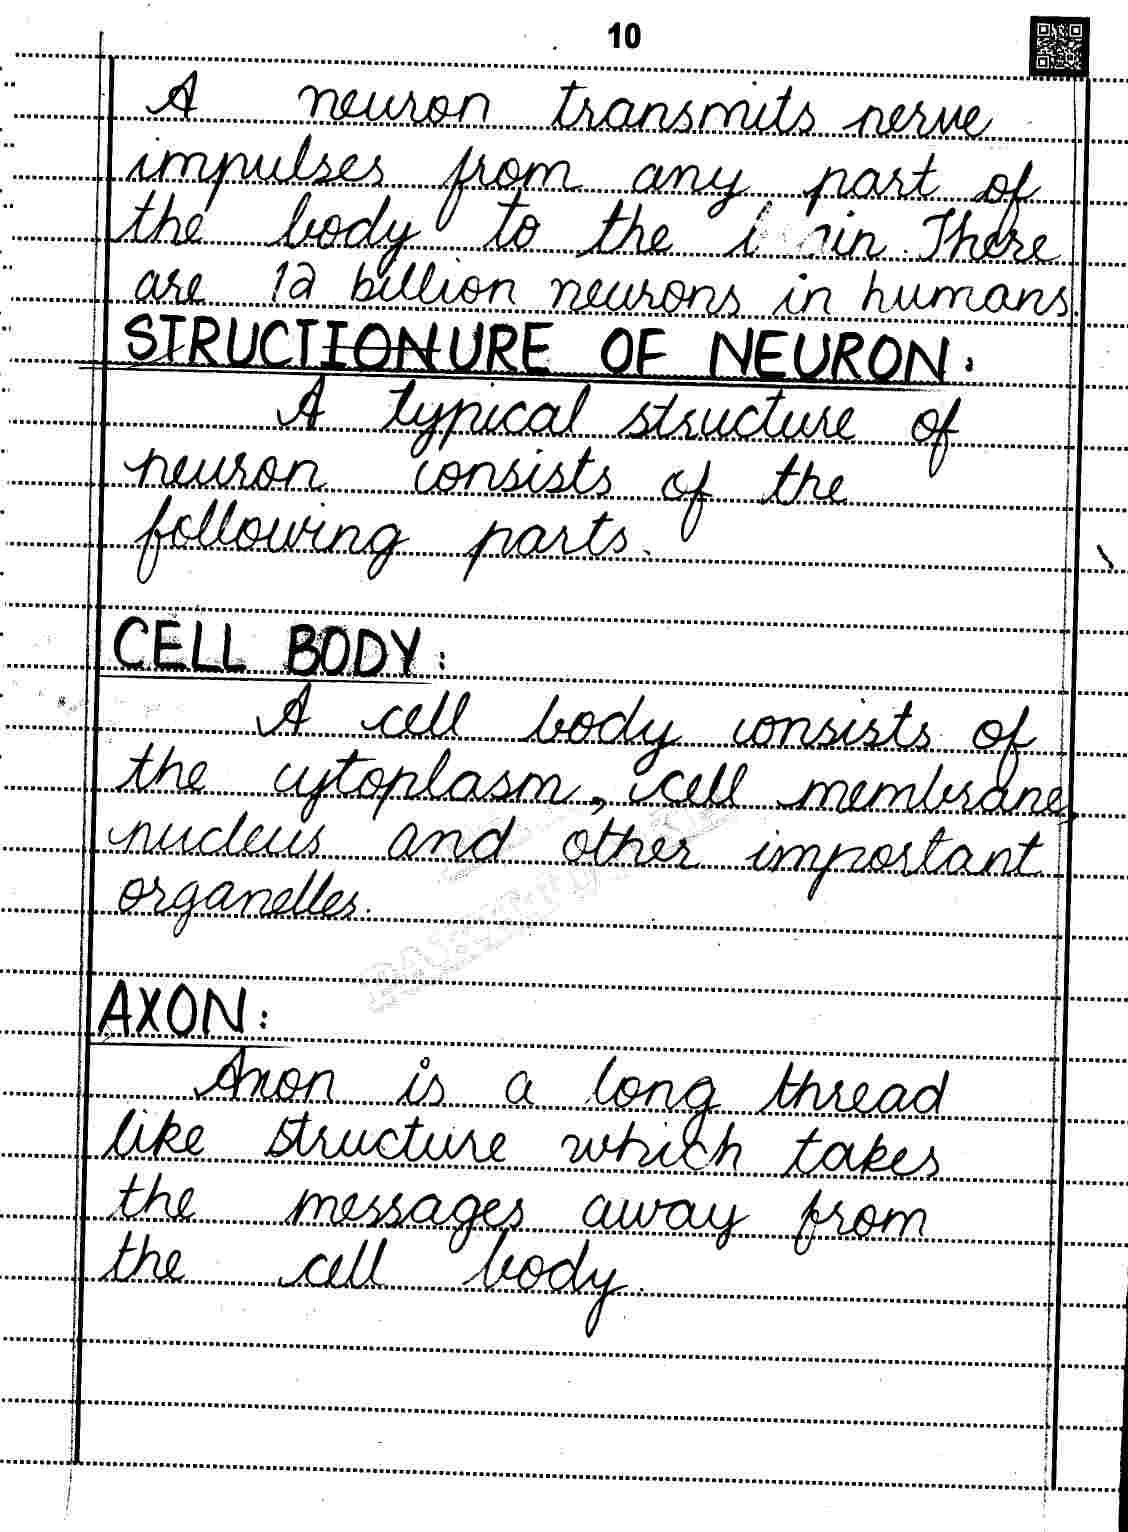 10
A neuron transmits nerve
impulses from any part of
the body to the brain. There
are 12 billion neurons in humans.
STRUCTIONURE OF NEURON:
A typical structure of
neuron consists of the
following parts.
CELL BODY:
A cell body consists of
the cytoplasm, cell membrane,
nucleus and other important
organelles.
AXON:
Axon is a long thread
like structure which takes
the messages away from
the cell body.